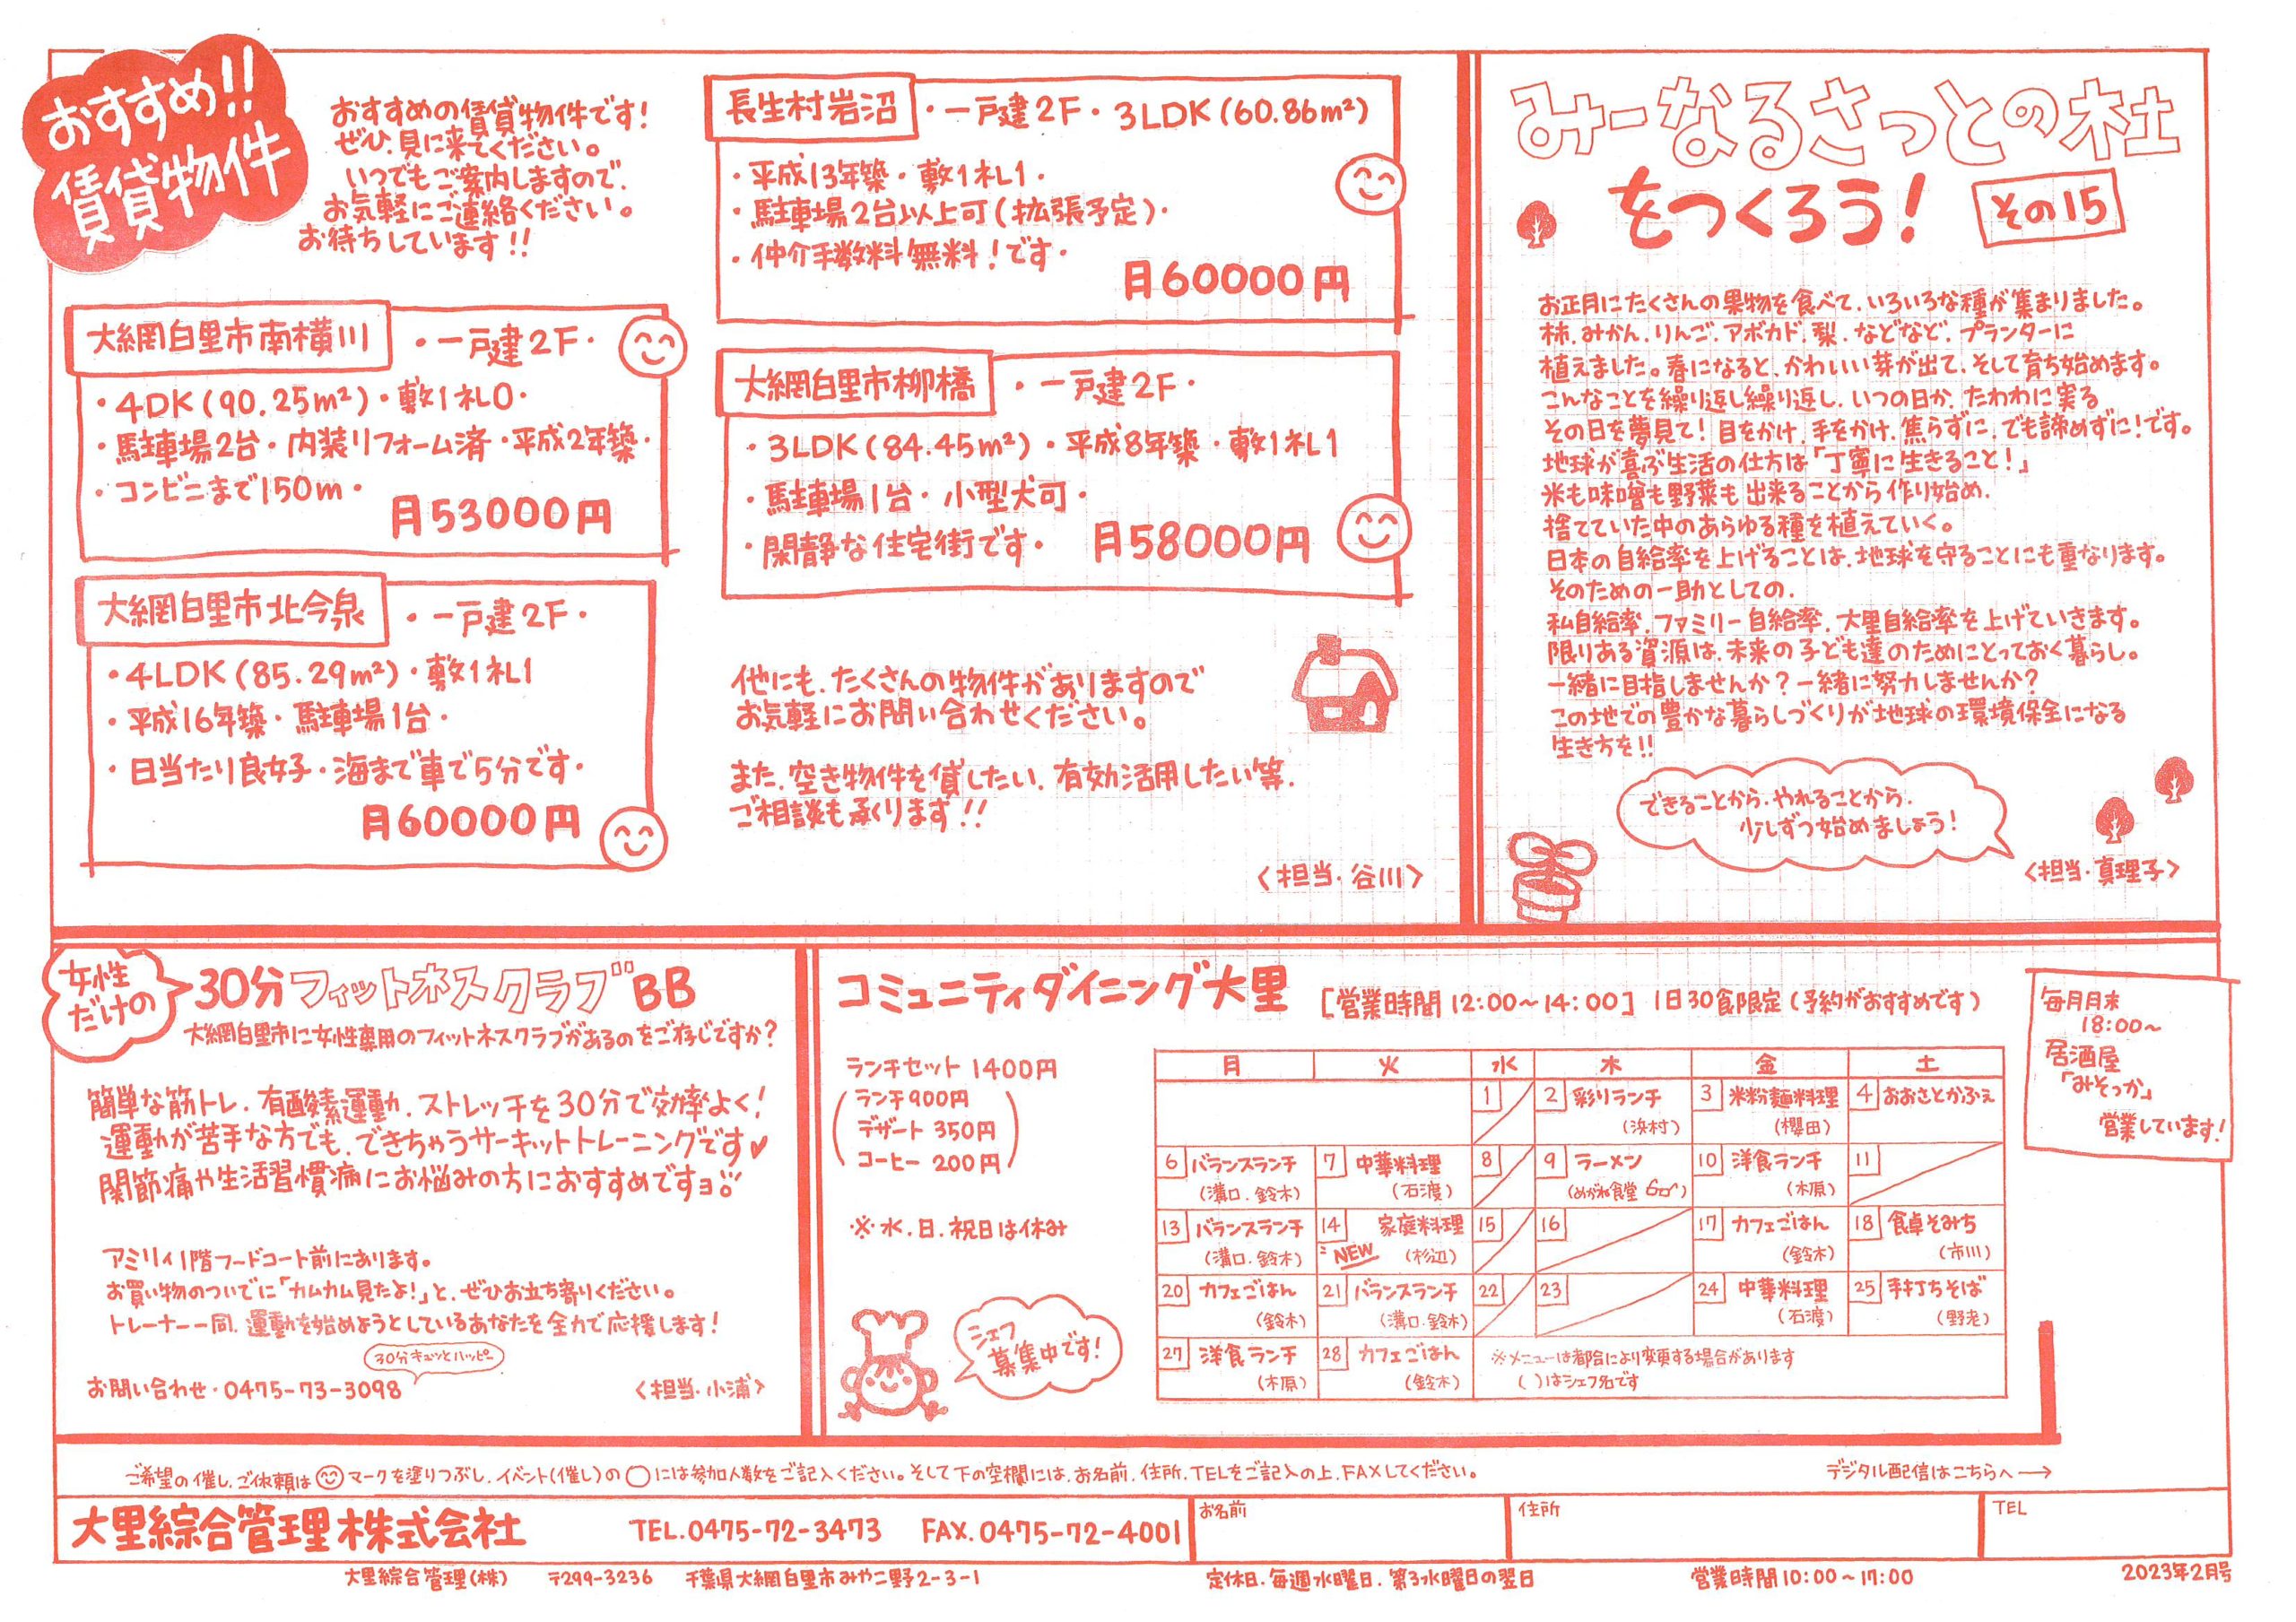 おすすめ!!
賃貸物件
おすすめの賃貸物件です!
ぜひ、見に来てください。
いつでもご案内しますので、
お気軽にご連絡ください。
お待ちしています!!
大網白里市南横川 ・一戸建2F・
・4DK(90.25m²)・敷1礼0・
・駐車場2台・内装リフォーム済・平成2年築・
・コンビニまで150m・
月53000円
大網白里市北今泉 ・一戸建2F・
・4LDK(85.29m²)・敷1礼1
・平成16年築・駐車場1台・
・日当たり良好・海まで車で5分です・
月60000円
長生村岩沼 ・一戸建2F・3LDK(60.86m²)
・平成13年築・敷1礼1・
・駐車場2台以上可(拡張予定)・
・仲介手数料無料!です・
月60000円
大網白里市柳橋 ・一戸建2F・
・3LDK(84.45m²)・平成8年築・敷1礼1
・駐車場1台・小型犬可・
・閑静な住宅街です・ 月58000円
他にも、たくさんの物件がありますので
お気軽にお問い合わせください。
また、空き物件を貸したい、有効活用したい等、
ご相談も承ります!!
〈担当・谷川〉
みーなるさっとの杜
をつくろう! その15
お正月にたくさんの果物を食べて、いろいろな種が集まりました。
柿、みかん、りんご、アボカド、梨、などなど、プランターに
植えました。春になると、かわいい芽が出て、そして育ち始めます。
こんなことを繰り返し繰り返し、いつの日か、たわわに実る
その日を夢見て!目をかけ、手をかけ、焦らずに、でも諦めずに!です。
地球が喜ぶ生活の仕方は「丁寧に生きること!」
米も味噌も野菜も出来ることから作り始め、
捨てていた中のあらゆる種を植えていく。
日本の自給率を上げることは、地球を守ることにも重なります。
そのための一助としての、
私自給率、ファミリー自給率、大里自給率を上げていきます。
限りある資源は、未来の子ども達のためにとっておく暮らし。
一緒に目指しませんか?一緒に努力しませんか?
この地での豊かな暮らしづくりが地球の環境保全になる
生き方を!!
できることから、やれることから、
少しずつ始めましょう!
〈担当・真理子〉
女性
だけの
30分フィットネスクラブBB
大網白里市に女性専用のフィットネスクラブがあるのをご存じですか?
簡単な筋トレ、有酸素運動、ストレッチを30分で効率よく!
運動が苦手な方でも、できちゃうサーキットトレーニングです♥
関節痛や生活習慣病にお悩みの方におすすめですョ!!
アミリィ1階フードコート前にあります。
お買い物のついでに「カムカム見たよ!」と、ぜひお立ち寄りください。
トレーナー一同、運動を始めようとしているあなたを全力で応援します!
30分キュッとハッピー
お問い合わせ・0475-73-3098 〈担当・小浦〉
コミュニティダイニング大里 [営業時間12:00~14:00] 1日30食限定(予約がおすすめです)
ランチセット 1400円
ランチ900円
デザート 350円
コーヒー 200円
※水、日、祝日は休み
シェフ
募集中です!
月 火 水 木 金 土
1 2 彩りランチ 3 米粉麺料理 4 おおさとかふぇ
(浜村) (櫻田)
6 バランスランチ 7 中華料理 8 9 ラーメン 10 洋食ランチ 11
(溝口、鈴木) (石渡) (めがね食堂) (木原)
13 バランスランチ 14 家庭料理 15 16 17 カフェごはん 18 食卓そみち
(溝口、鈴木) NEW (杉辺) (鈴木) (市川)
20 カフェごはん 21 バランスランチ 22 23 24 中華料理 25 手打ちそば
(鈴木) (溝口、鈴木) (石渡) (野老)
27 洋食ランチ 28 カフェごはん ※メニューは都合により変更する場合があります
(木原) (鈴木) ( )はシェフ名です
毎月月末
18:00~
居酒屋
「みそっか」
営業しています!
ご希望の催し、ご依頼は マークを塗りつぶし、イベント(催し)の○には参加人数をご記入ください。そして下の空欄には、お名前、住所、TELをご記入の上、FAXしてください。
デジタル配信はこちらへ→
大里綜合管理株式会社 TEL.0475-72-3473 FAX.0475-72-4001 お名前 住所 TEL
大里綜合管理(株) 〒299-3236 千葉県大網白里市みやこ野2-3-1 定休日、毎週水曜日、第3水曜日の翌日 営業時間10:00~17:00 2023年2月号